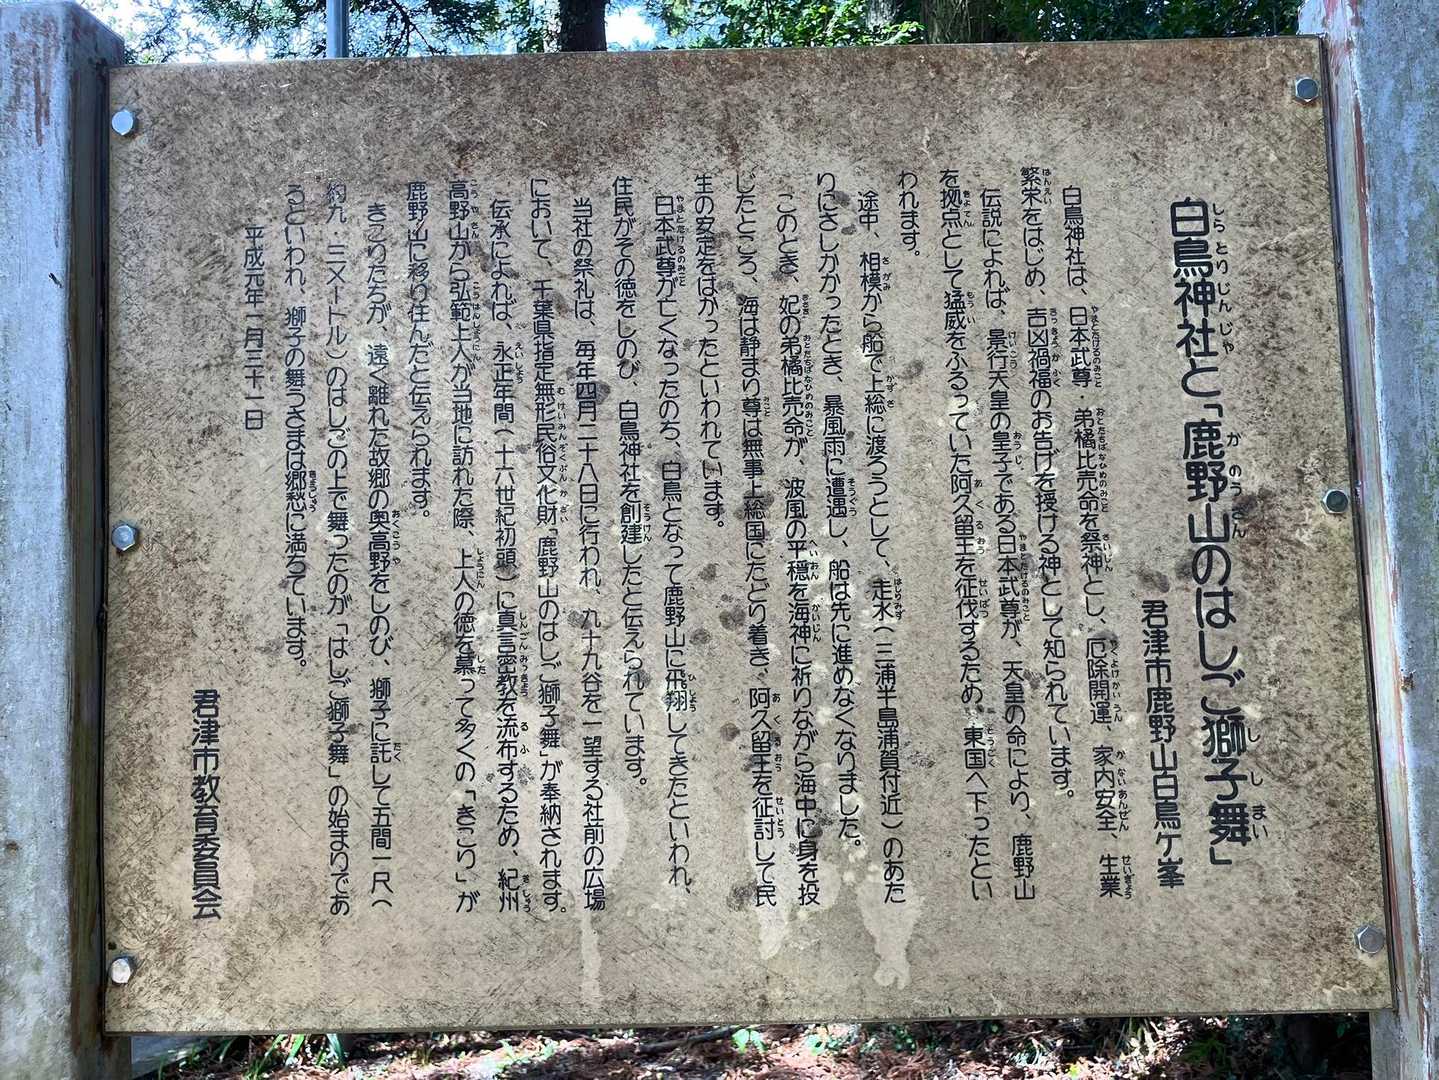 白鳥神社と「鹿野山のはしご獅子舞」
君津市鹿野山白鳥ケ峯
白鳥神社は、日本武尊・弟橘比売命を祭神とし、厄除開運、家内安全、生業
繁栄をはじめ、吉凶禍福のお告げを授ける神として知られています。
伝説によれば、景行天皇の皇子である日本武尊が、天皇の命により、鹿野山
を拠点として猛威をふるっていた阿久留王を征伐するため、東国へ下ったとい
われます。
途中、相模から船で上総に渡ろうとして、走水(三浦半島浦賀付近)のあた
りにさしかかったとき、暴風雨に遭遇し、船は先に進めなくなりました。
このとき、妃の弟橘比売命が、波風の平穏を海神に祈りながら海中に身を投
じたところ、海は静まり尊は無事上総国にたどり着き、阿久留王を征討して民
生の安定をはかったといわれています。
日本武尊が亡くなったのち、白鳥となって鹿野山に飛翔してきたといわれ、
住民がその徳をしのび、白鳥神社を創建したと伝えられています。
当社の祭礼は、毎年四月二十八日に行われ、九十九谷を一望する社前の広場
において、千葉県指定無形民俗文化財「鹿野山のはしご獅子舞」が奉納されます。
伝承によれば、永正年間(十六世紀初頭)に真言密教を流布するため、紀州
高野山から弘範上人が当地に訪れた際、上人の徳を慕って多くの「きこり」が
鹿野山に移り住んだと伝えられます。
きこりたちが、遠く離れた故郷の奥高野をしのび、獅子に託して五間一尺(
約九・三メートル)のはしごの上で舞ったのが「はしご獅子舞」の始まりであ
るといわれ、獅子の舞うさまは郷愁に満ちています。
平成元年一月三十一日
君津市教育委員会